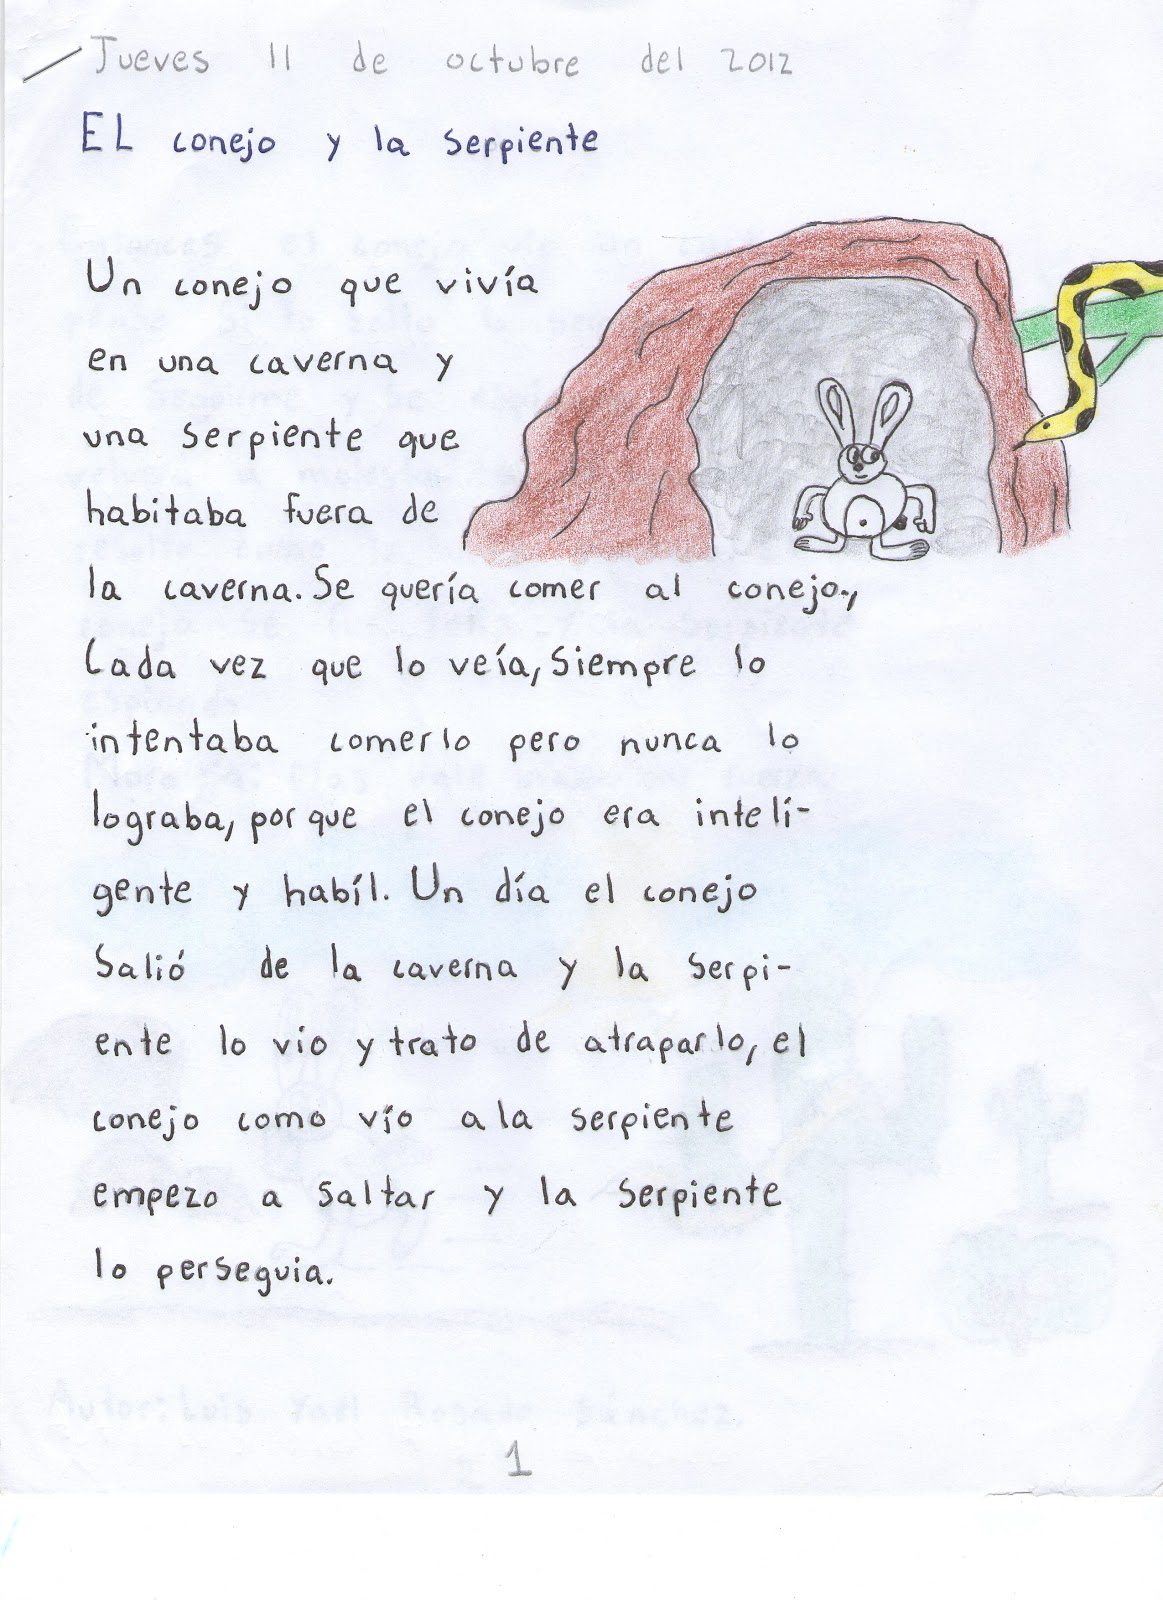 Jueves 11 de octubre del 2012
EL conejo y la serpiente
Un conejo que vivía
en una caverna y
una serpiente que
habitaba fuera de
la caverna. Se quería comer al conejo.,
Cada vez que lo veía, siempre lo
intentaba comerlo pero nunca lo
lograba, por que el conejo era inteli-
gente y habíl. Un día el conejo
Salió de la caverna y la serpi-
ente lo vio y trato de atraparlo, el
conejo como vío a la serpiente
empezo a saltar y la serpiente
lo perseguia.
Autor: Luis Yael Rosado Sánchez.
1